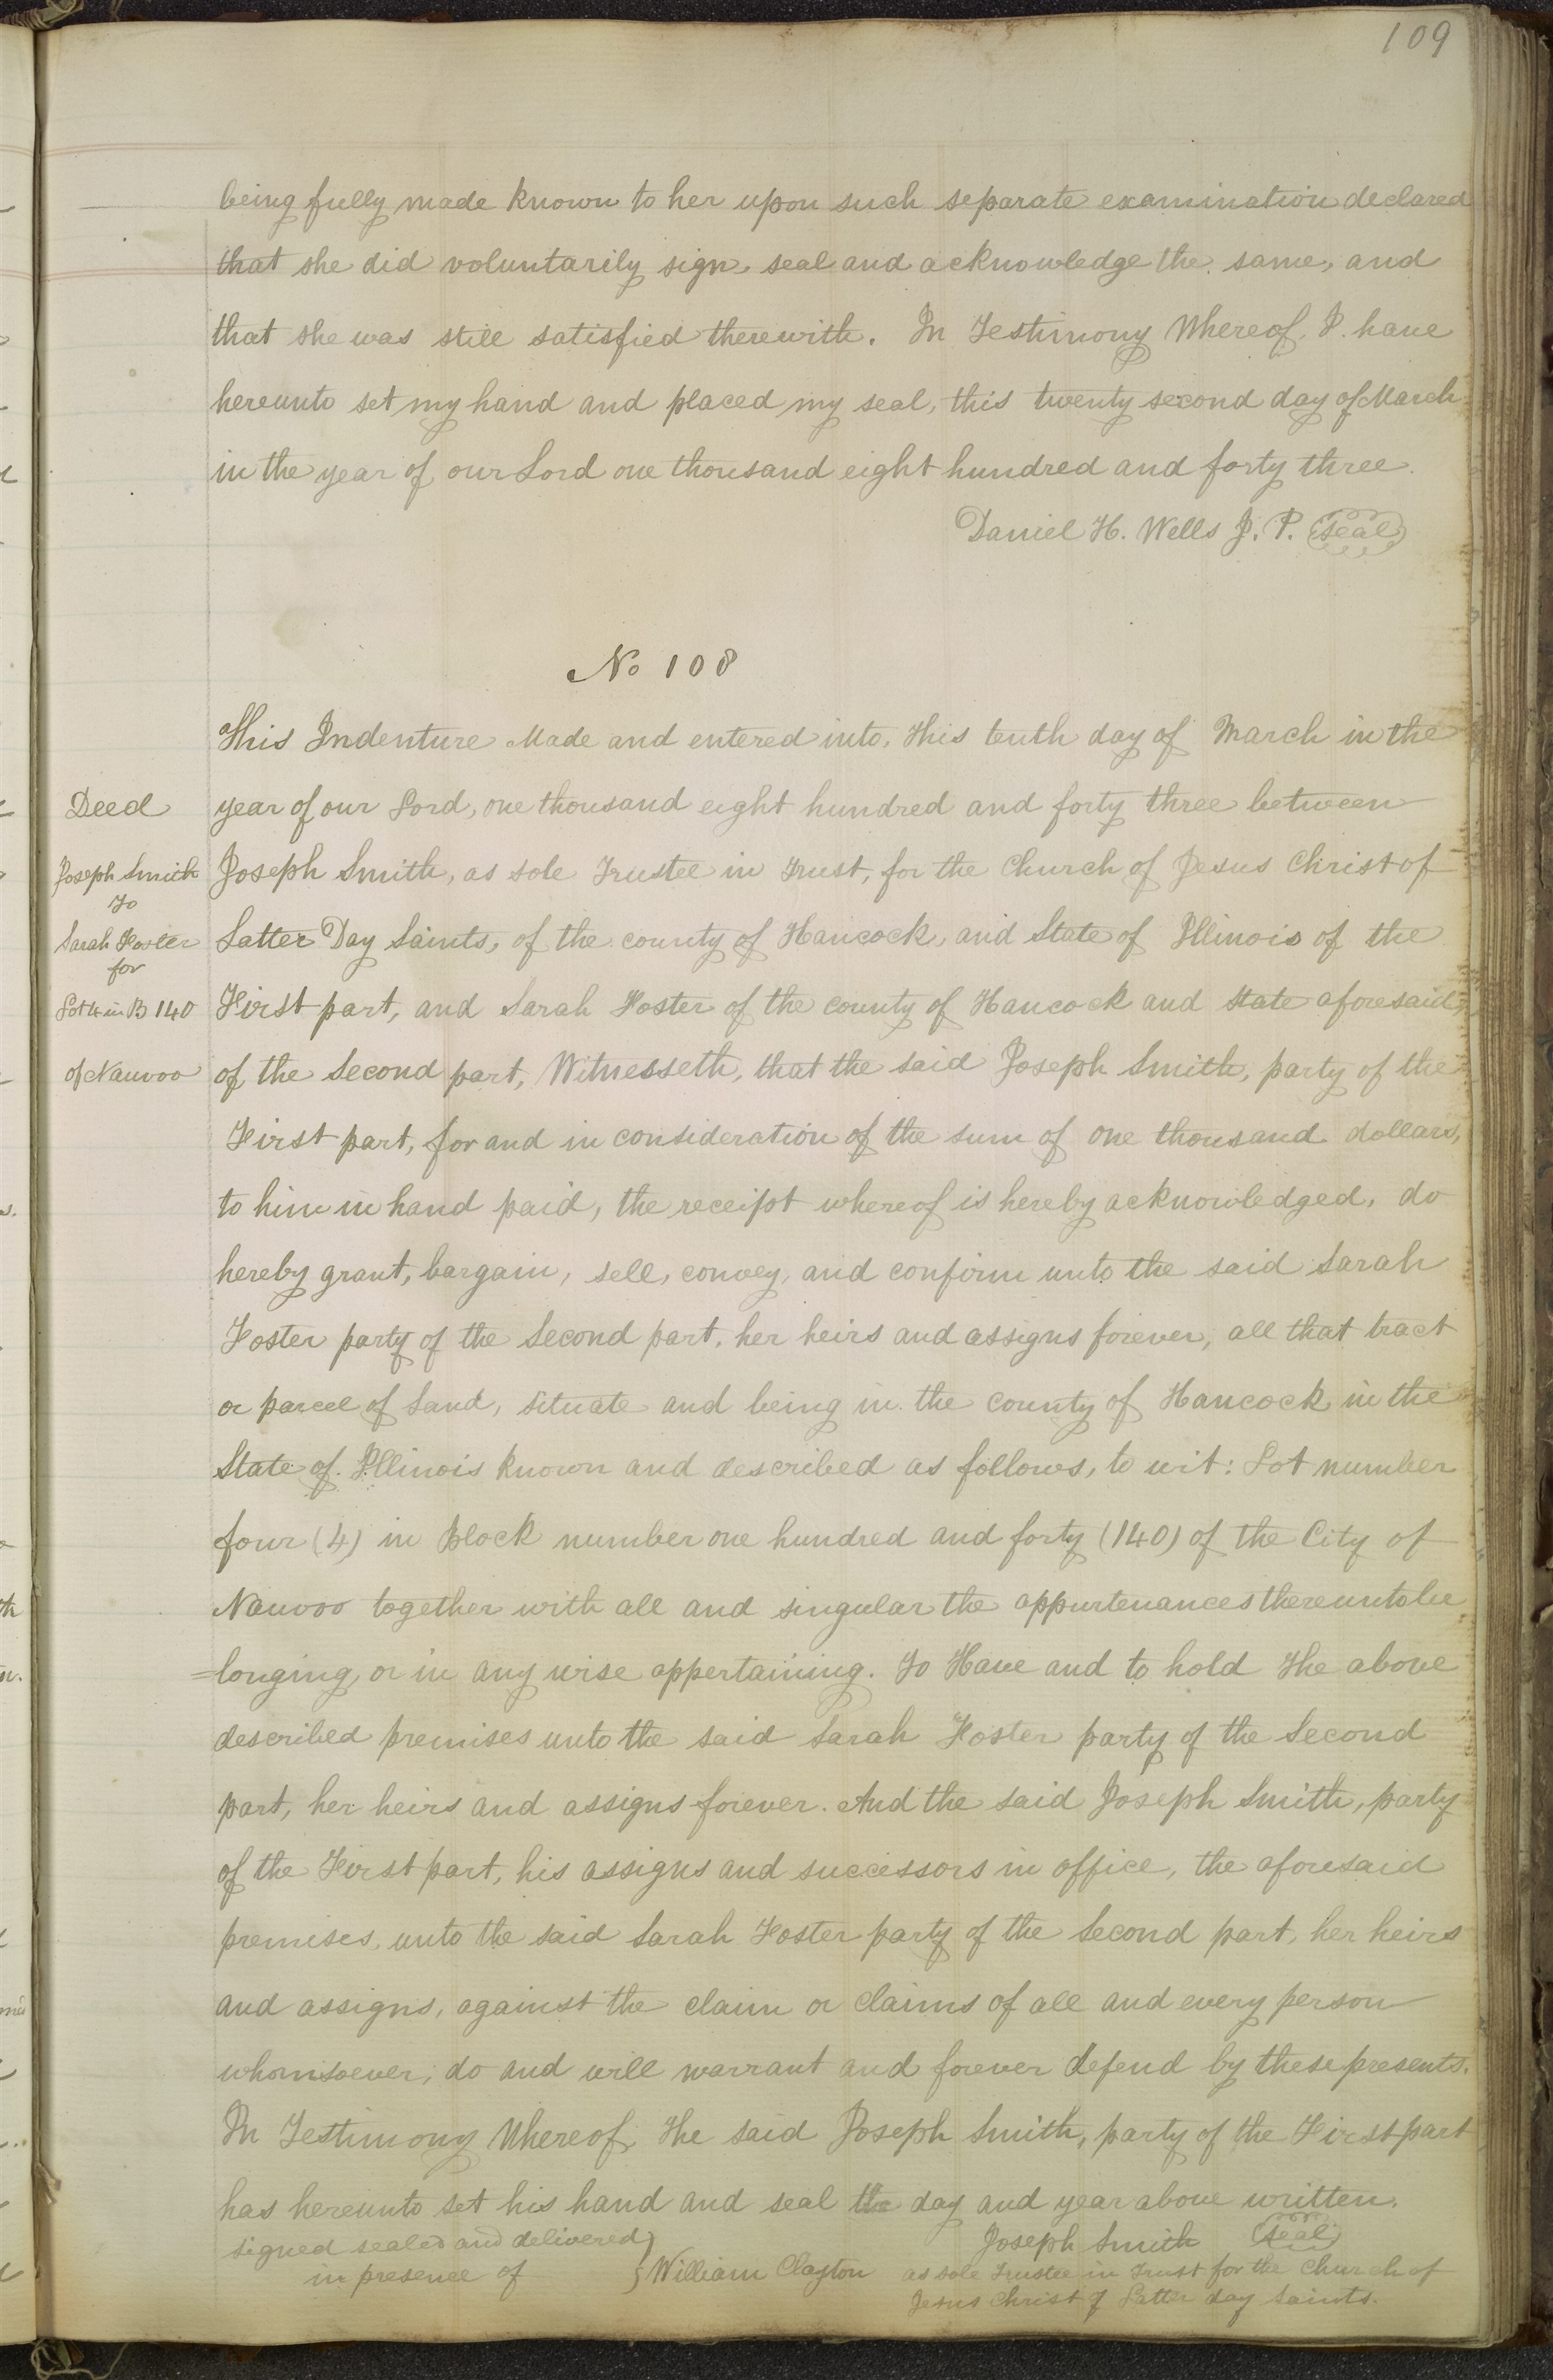 109
being fully made known to her upon such separate examination declared
that she did voluntarily sign, seal and acknowledge the same, and
that she was still satisfied therewith. In Testimony Whereof, I have
hereunto set my hand and placed my seal, this twenty second day of March
in the year of our Lord one thousand eight hundred and forty three.
Daniel H. Wells J. P. (seal)
No 108
This Indenture Made and entered into, this tenth day of March in the
Deed
year of our Lord, one thousand eight hundred and forty three between
Joseph Smith
Joseph Smith, as sole Trustee in Trust, for the Church of Jesus Christ of
To
Sarah Foster
Latter Day Saints, of the county of Hancock, and State of Illinois of the
for
Lot 4 in B 140
First part, and Sarah Foster of the county of Hancock and State aforesaid,
of Nauvoo
of the Second part, Witnesseth, that the said Joseph Smith, party of the
First part, for and in consideration of the sum of one thousand dollars,
to him in hand paid, the receipt whereof is hereby acknowledged, do
hereby grant, bargain, sell, convey, and confirm unto the said Sarah
Foster party of the Second part, her heirs and assigns forever, all that tract
or parcel of Land, situate and being in the county of Hancock in the
State of Illinois known and described as follows, to wit: Lot number
four (4) in Block number one hundred and forty (140) of the City of
Nauvoo together with all and singular the appurtenances thereunto be
=longing, or in any wise appertaining. To Have and to hold The above
described premises unto the said Sarah Foster party of the Second
part, her heirs and assigns forever. And the said Joseph Smith, party
of the First part, his assigns and successors in office, the aforesaid
premises, unto the said Sarah Foster party of the Second part, her heirs
and assigns, against the claim or claims of all and every person
whomsoever, do and will warrant and forever defend by these presents.
In Testimony Whereof, The said Joseph Smith, party of the First part
has hereunto set his hand and seal the day and year above written.
signed sealed and delivered } Joseph Smith (seal)
in presence of } William Clayton as sole Trustee in Trust for the Church of
Jesus Christ of Latter day Saints.